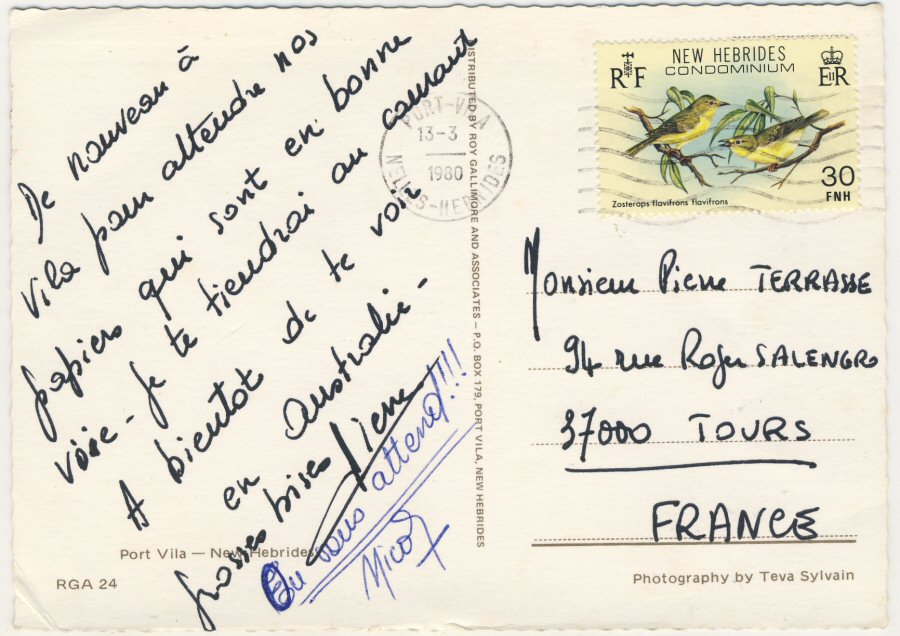 De nouveau à
Vila pour attendre nos
papiers qui sont en bonne
voie - Je te tiendrai au courant
A bientot de te voir
en Australie -
Grosses bises Pierre
On vous attend!!!
Port Vila — New Hebrides
RGA 24
DISTRIBUTED BY ROY GALLIMORE AND ASSOCIATES – P.O. BOX 179, PORT VILA, NEW HEBRIDES
PORT-VILA
13-3
1980
NELLES-HEBRIDES
NEW HEBRIDES
CONDOMINIUM
RF
EIIR
30
FNH
Zosterops flavifrons flavifrons
Monsieur Pierre TERRASSE
94 rue Roger SALENGRO
37000 TOURS
FRANCE
Photography by Teva Sylvain